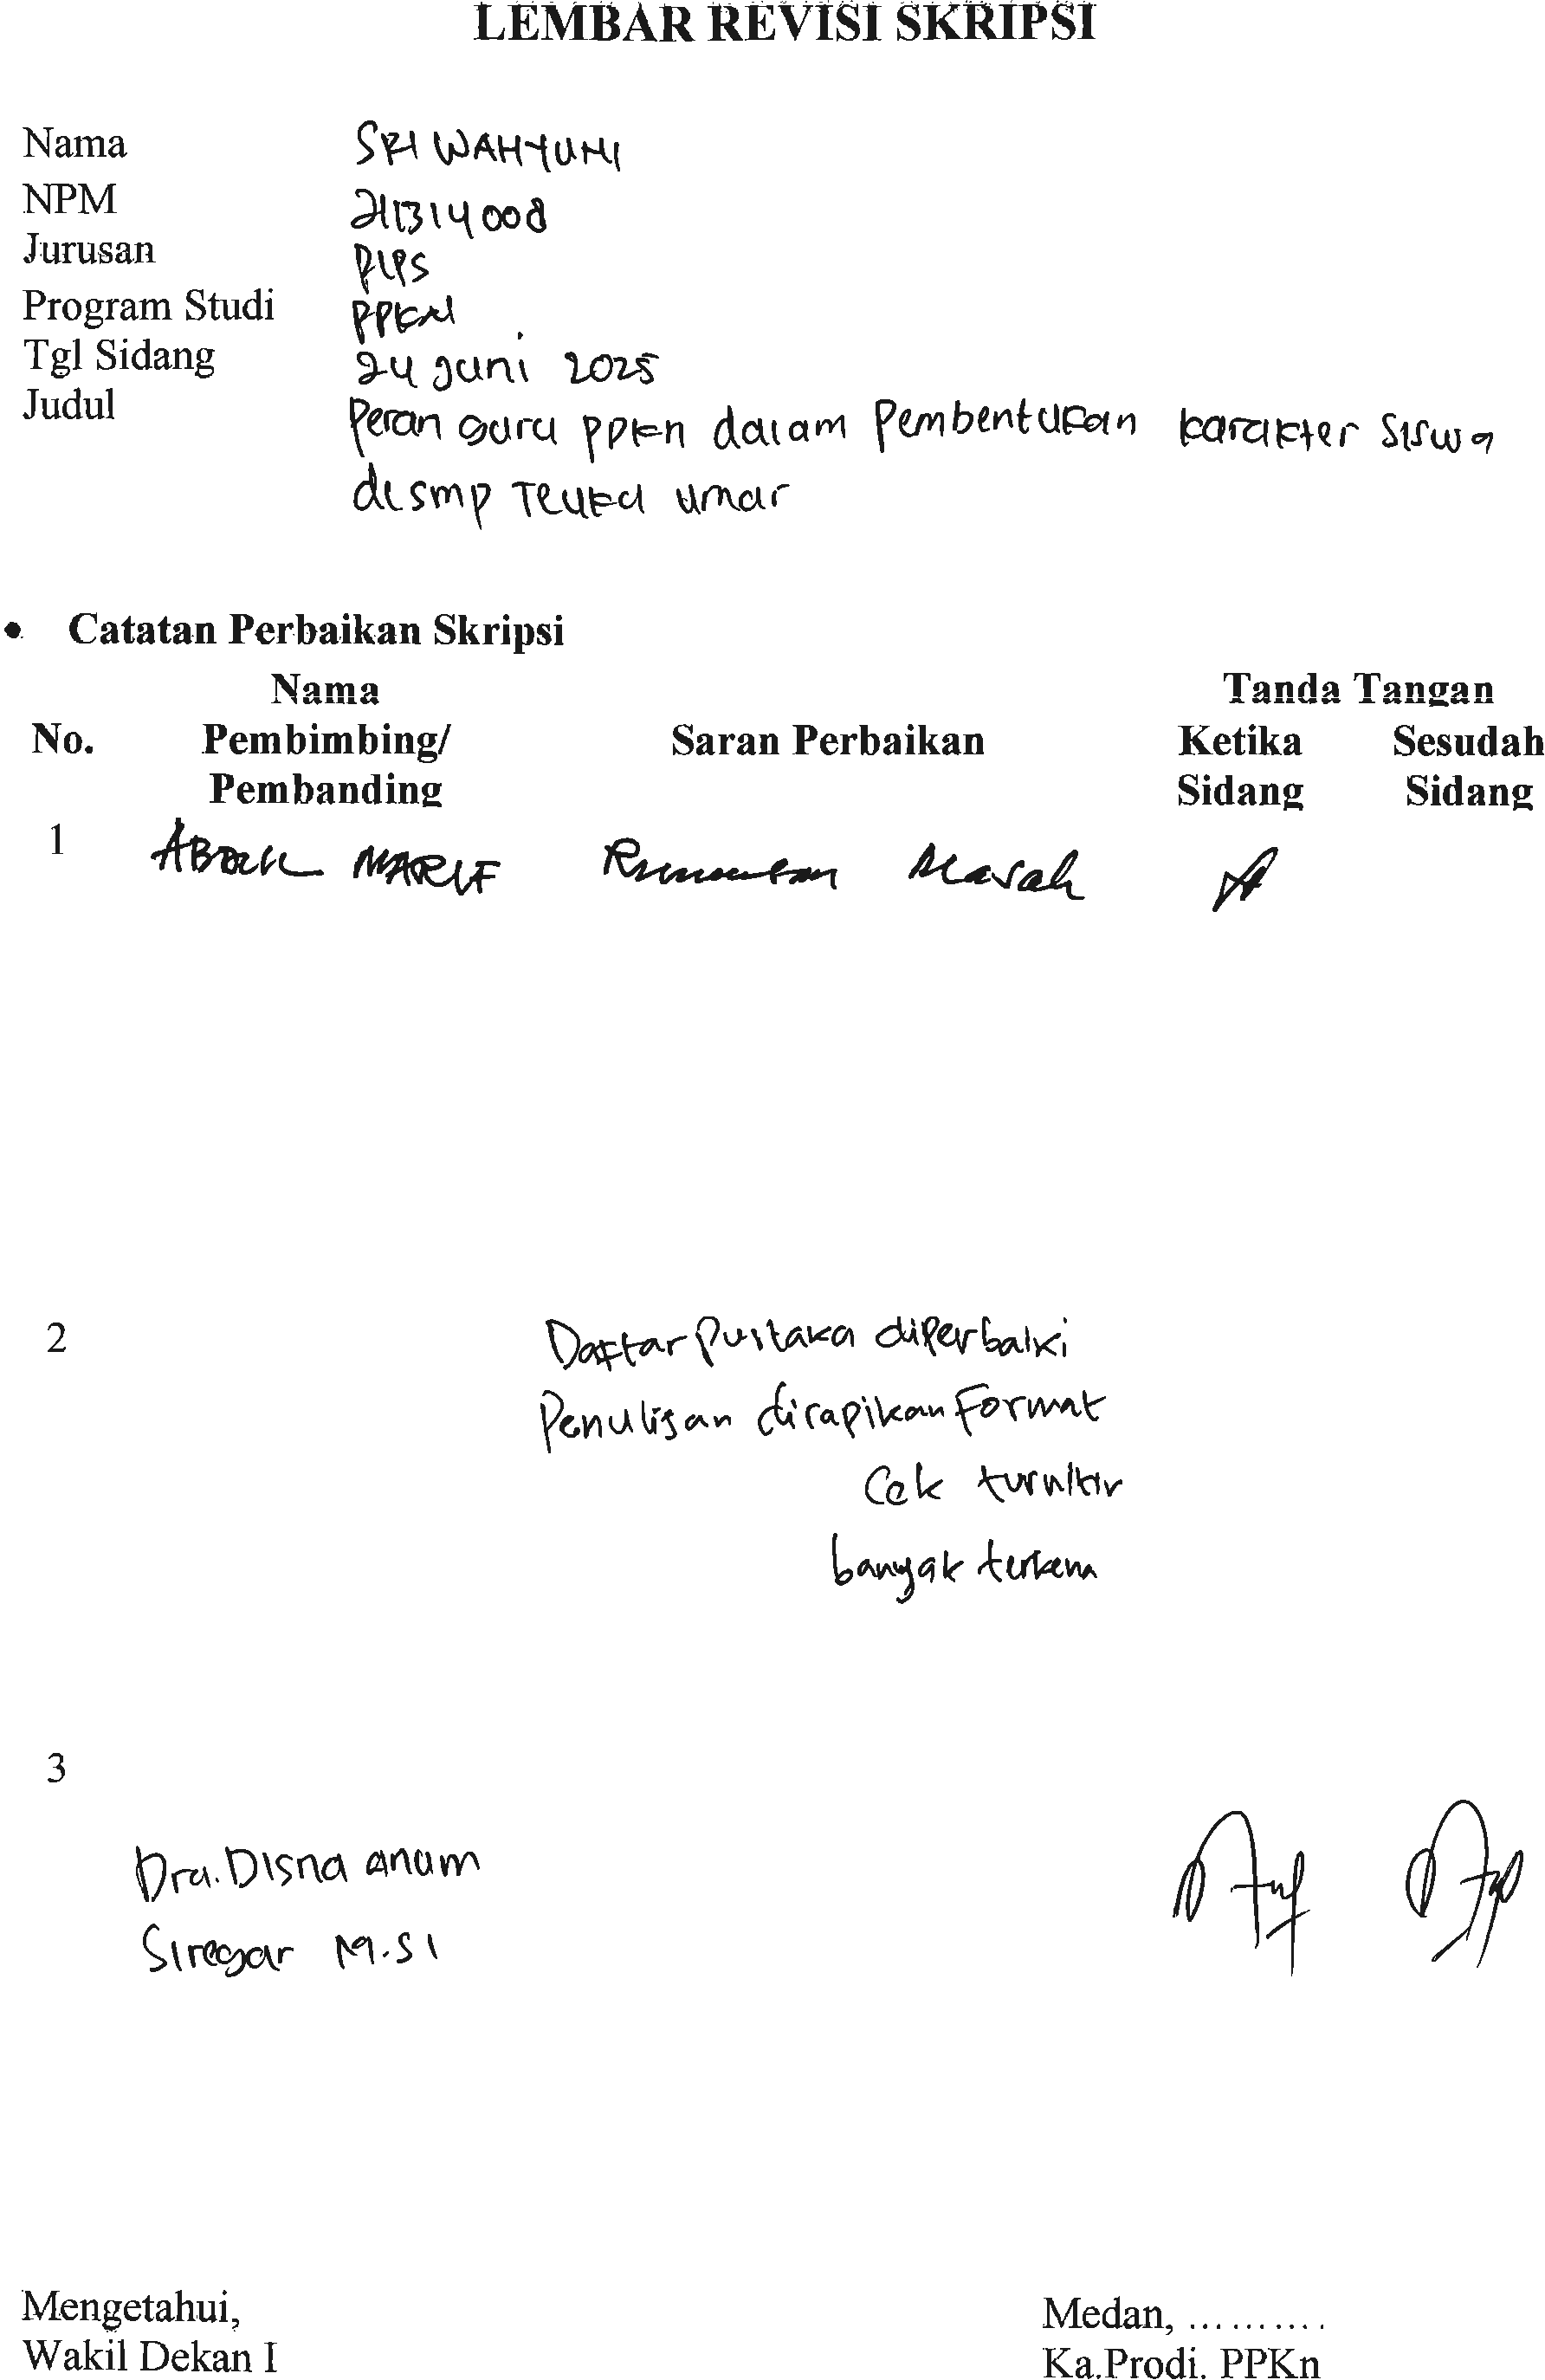 LEMBAR REVISI SKRIPSI
Nama SRI WAHYUNI
NPM 211314008
Jurusan PIPS
Program Studi PPKN
Tgl Sidang 24 Juni 2025
Judul Peran guru ppkn dalam Pembentukan karakter siswa
di smp Teuku umar
• Catatan Perbaikan Skripsi
Nama Tanda Tangan
No. Pembimbing/ Saran Perbaikan Ketika Sesudah
Pembanding Sidang Sidang
1 Rumusan Masalah
2 Daftar Pustaka diperbaiki
Penulisan dirapikan Format
Cek turnitin
banyak
3
Dra. Disna anum
Siregar M.Si
Mengetahui, Medan, ..........
Wakil Dekan I Ka.Prodi. PPKn